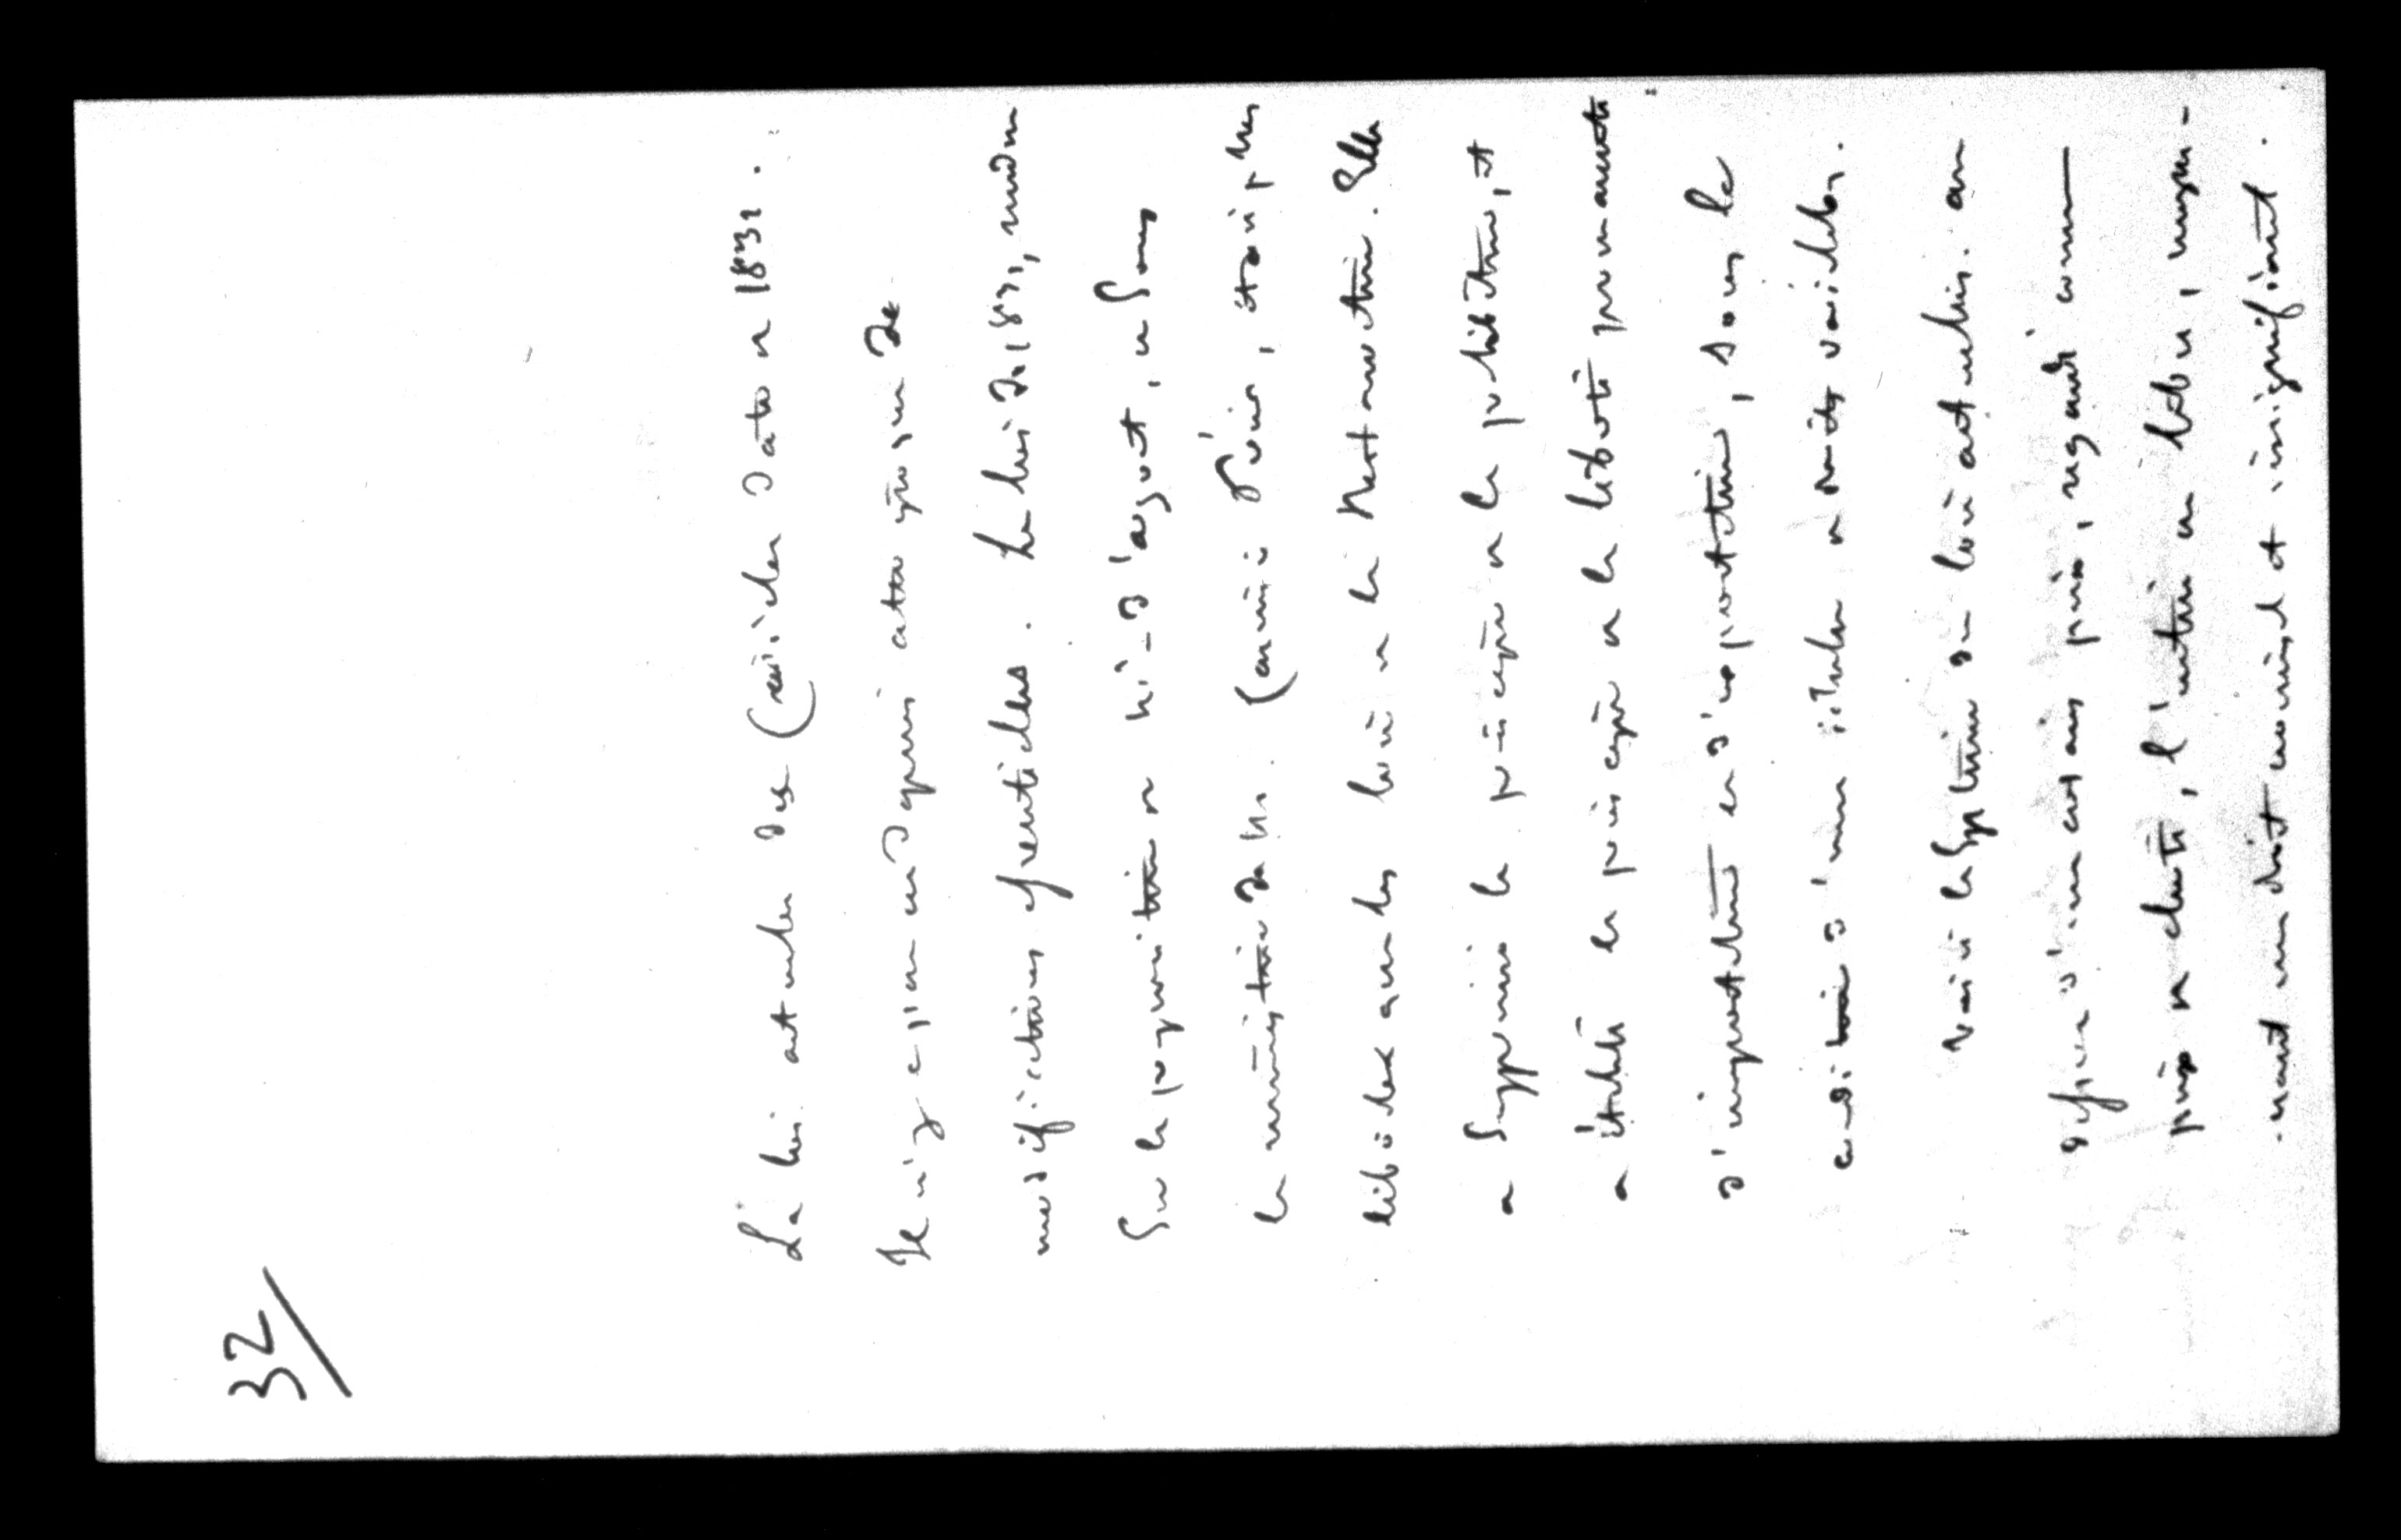 32/
La loi actuelle des Céréales date de 1832.
Il n'y a pas eu depuis cette époque de
modifications essentielles. La loi de 1832, rendue
sur la proposition de M. d'Argout, et sous
le ministère de M. Casimir Périer, était plus
libérale que les lois de la Restauration. Elle
a supprimé le principe de la prohibition, et
a établi le principe de la liberté permanente
d'importation et d'exportation, sous la
condition d'une échelle de droits variables.
Voici le système de la loi actuelle. Au
dessus d'un certain prix, regardé comme
prix de cherté, l'entrée est libre, moyen-
nant un droit nominal et insignifiant.